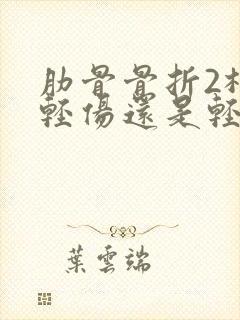 肋骨骨折2
輕傷還是輕
葉雲端